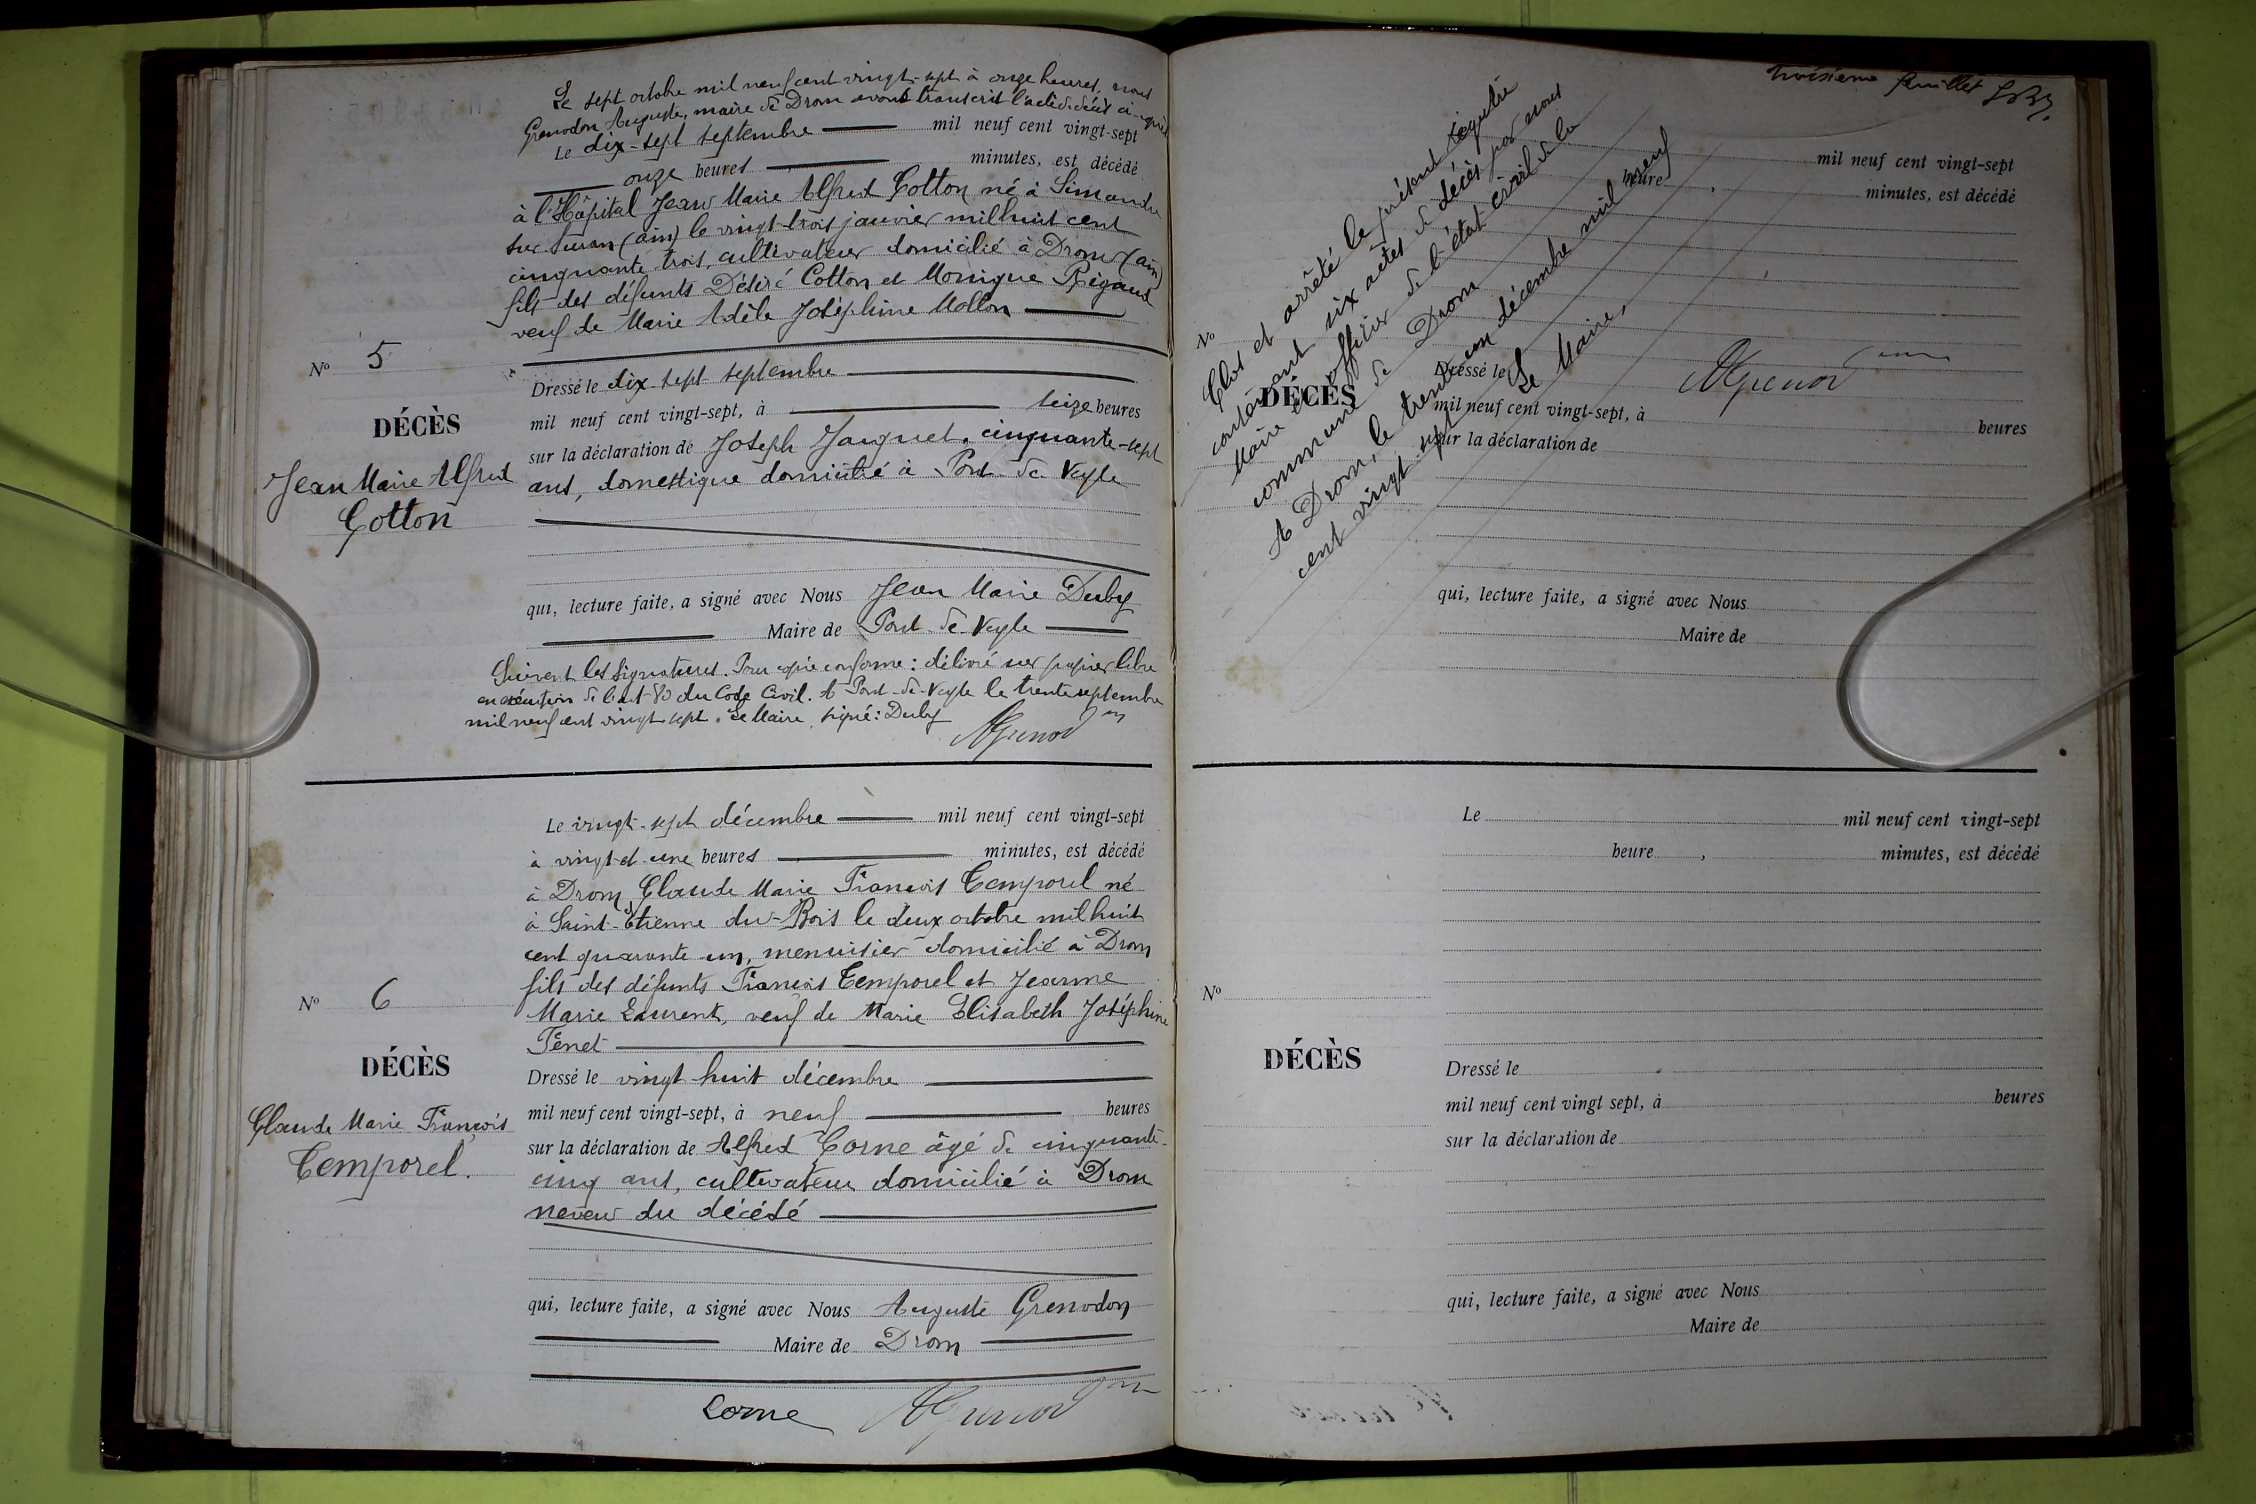 Le sept octobre mil neuf cent vingt-sept à onze heures, nous
Grenodon Auguste, maire de Drom avons transcrit l'acte de décès ci-après
Le dix-sept septembre mil neuf cent vingt-sept
onze heures minutes, est décédé
à l'Hôpital Jean Marie Alfred Cotton né à Simandre
sur Suran (ain) le vingt-trois janvier mil huit cent
cinquante trois, cultivateur domicilié à Drom (ain)
fils des défunts Désiré Cotton et Monique Rigaud
veuf de Marie Adèle Joséphine Mollon
No 5
DÉCÈS
Jean Marie Alfred
Cotton
Dressé le dix-sept septembre
mil neuf cent vingt-sept, à seize heures
sur la déclaration de Joseph Janguet, cinquante-sept
ans, domestique domicilié à Pont-de-Veyle
qui, lecture faite, a signé avec Nous Jean Marie Duby
Maire de Pont-de-Veyle
Suivent les signatures. Pour copie conforme: délivré sur papier libre
en exécution de l'art 80 du Code Civil. A Pont-de-Veyle le trente septembre
mil neuf cent vingt sept. Le Maire, signé: Duby
Le vingt-sept décembre mil neuf cent vingt-sept
à vingt-et-une heures minutes, est décédé
à Drom, Claude Marie François Temporel né
à Saint-Etienne-du-Bois le deux octobre mil huit
cent quarante un, menuisier domicilié à Drom
fils des défunts François Temporel et Jeanne
Marie Laurent, veuf de Marie Elisabeth Joséphine
Tenet
No 6
DÉCÈS
Claude Marie François
Temporel.
Dressé le vingt huit décembre
mil neuf cent vingt-sept, à neuf heures
sur la déclaration de Alfred Corne âgé de cinquante-
cinq ans, cultivateur domicilié à Drom
neveu du décédé
qui, lecture faite, a signé avec Nous Auguste Grenodon
Maire de Drom
Corne AGrenodon
troisième feuillet
Clos et arrêté le présent registre
contenant six actes de décès par nous
Maire et officier de l'état civil de la
commune de Drom
A Drom, le trente un décembre mil neuf
cent vingt sept Le Maire,
mil neuf cent vingt-sept
heure, minutes, est décédé
No
DÉCÈS
Dressé le
mil neuf cent vingt-sept, à heures
sur la déclaration de
qui, lecture faite, a signé avec Nous
Maire de
Le mil neuf cent vingt-sept
heure, minutes, est décédé
No
DÉCÈS
Dressé le
mil neuf cent vingt sept, à heures
sur la déclaration de
qui, lecture faite, a signé avec Nous
Maire de